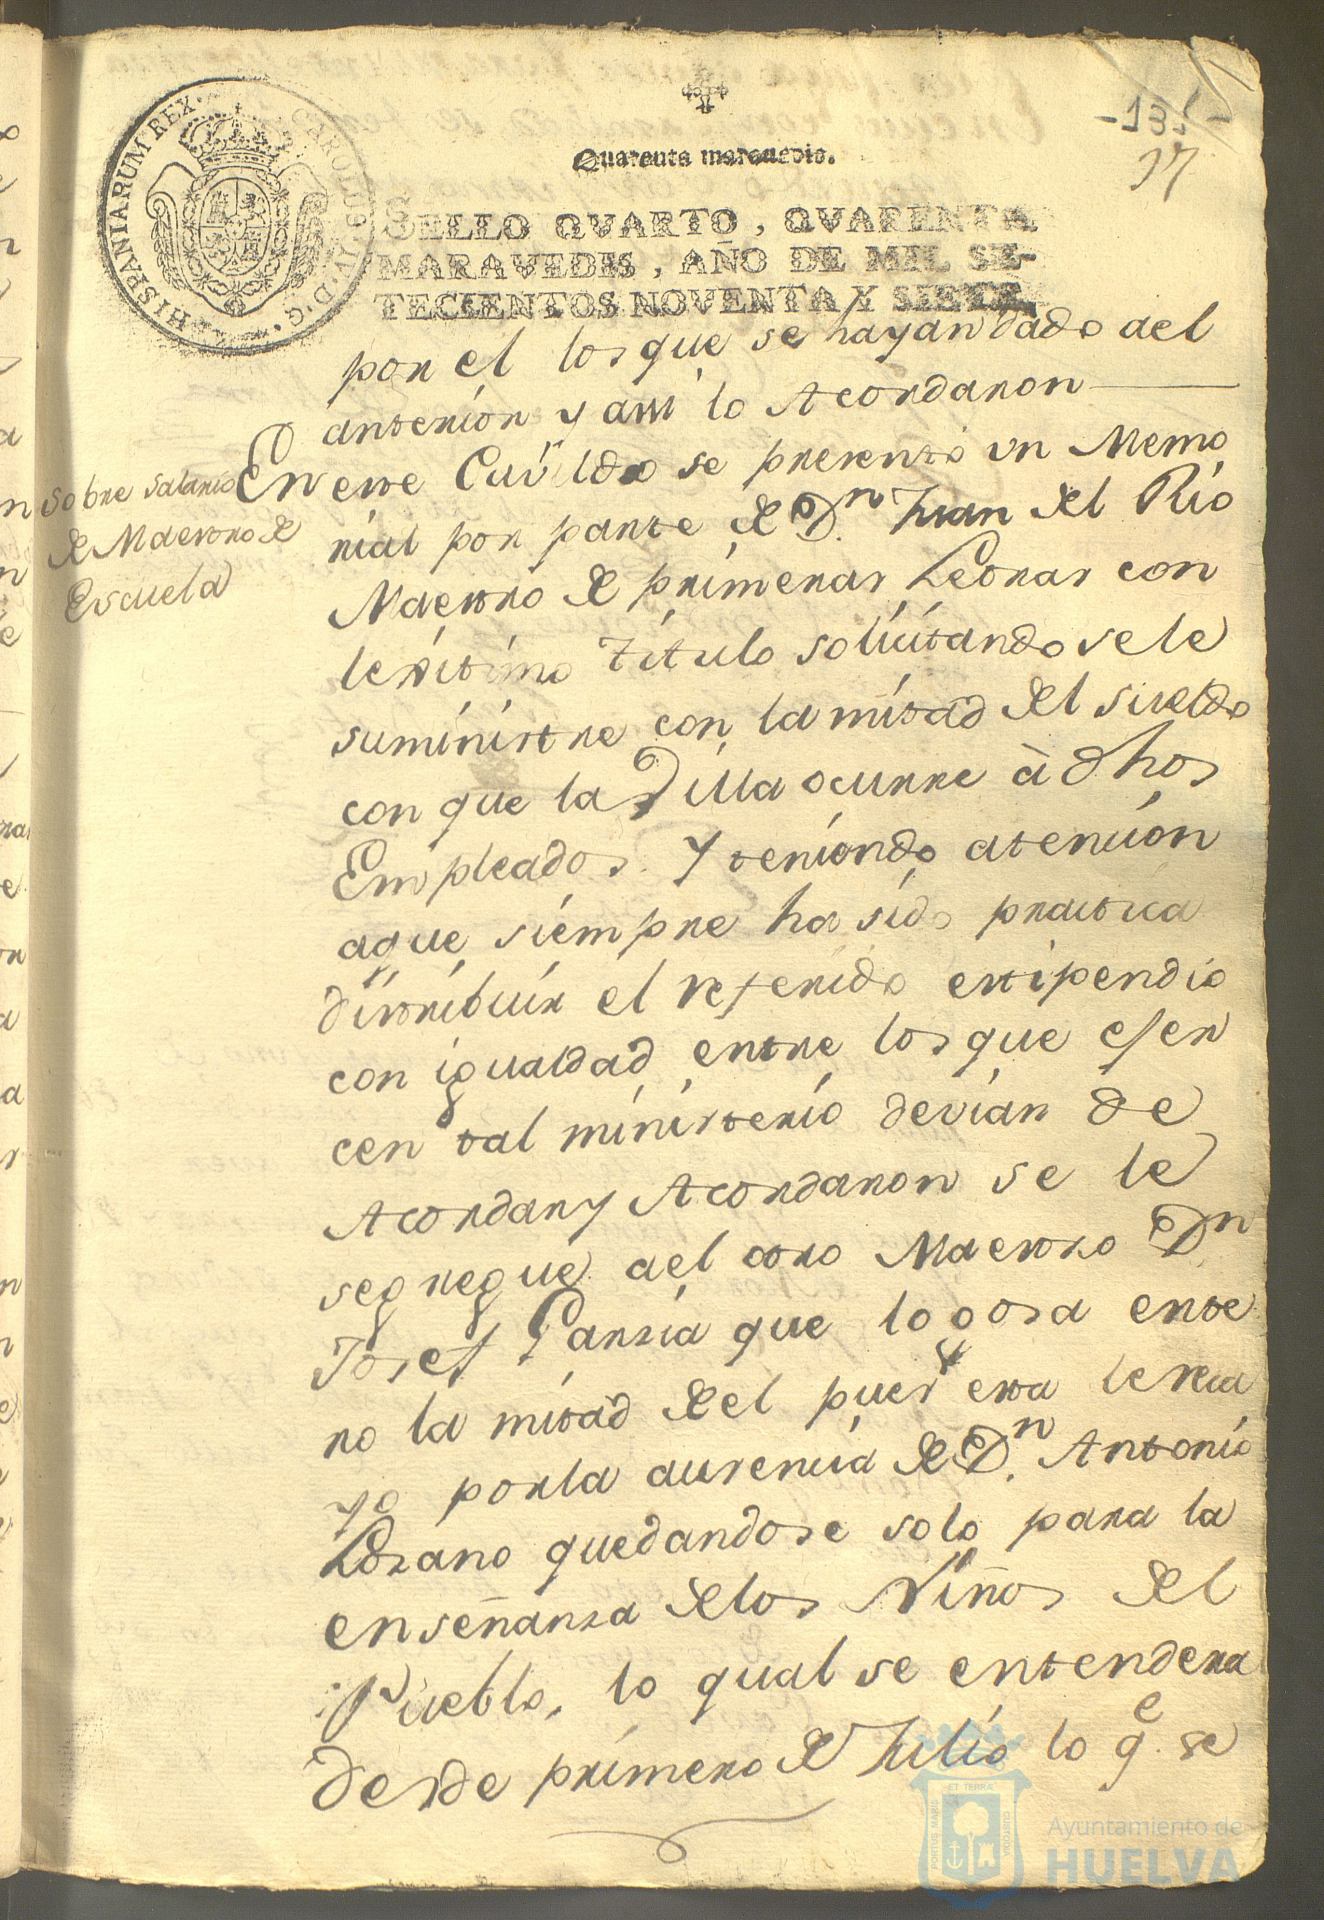 HISPANIARUM REX. CAROLUS IV D. G.
Quarenta maravedis.
17
SELLO QVARTO, QVARENTA
MARAVEDIS, AÑO DE MIL SE-
TECIENTOS NOVENTA Y SIETE.
por el los que se hayan dado del
anterior y assi lo Acordaron
sobre salario
de Maestro de
Escuela
En este Cavildo se presentó un Memo
rial por parte de Dn. Juan del Rio
Maestro de primeras Letras con
lexitimo titulo solicitando se le
suministre con la mitad del sueldo
con que la Villa ocurre à dhos
Empleados. Y teniendo atencion
aque siempre ha sido practica
distribuir el referido estipendio
con igualdad entre los que ejer
cen tal ministerio devian de
Acordar y Acordaron se le
segregue del otro Maestro Dn
Josef Garzia que lo gosa ente
ro la mitad de el pues esta le reca
yo por la ausencia de Dn. Antonio
Lozano quedandose solo para la
enseñanza de los Niños del
Pueblo, lo qual se entendera
desde primero de Julio lo qe. se
PORTUS MARIS ET TERRAE CUSTODIA
Ayuntamiento de
HUELVA